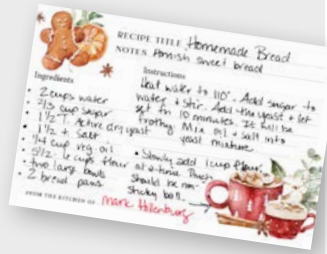 RECIPE TITLE Homemade Bread
NOTES Amish sweet bread
Ingredients
• 2 cups water
• 2/3 cup sugar
• 1 1/2 T. Active dry yeast
• 1 1/2 t Salt
• 1/4 cup veg oil
• 5 1/2 - 6 cups flour
• two large bowls
• 2 bread pans
Instructions
Heat water to 110°. Add sugar to
water + stir. Add the yeast + let
set for 10 minutes. It will be
frothy. Mix oil + salt into
yeast mixture.
• Slowly add 1 cup flour
at a time. Dough
should be non-
sticky ball.
FROM THE KITCHEN OF: Mark